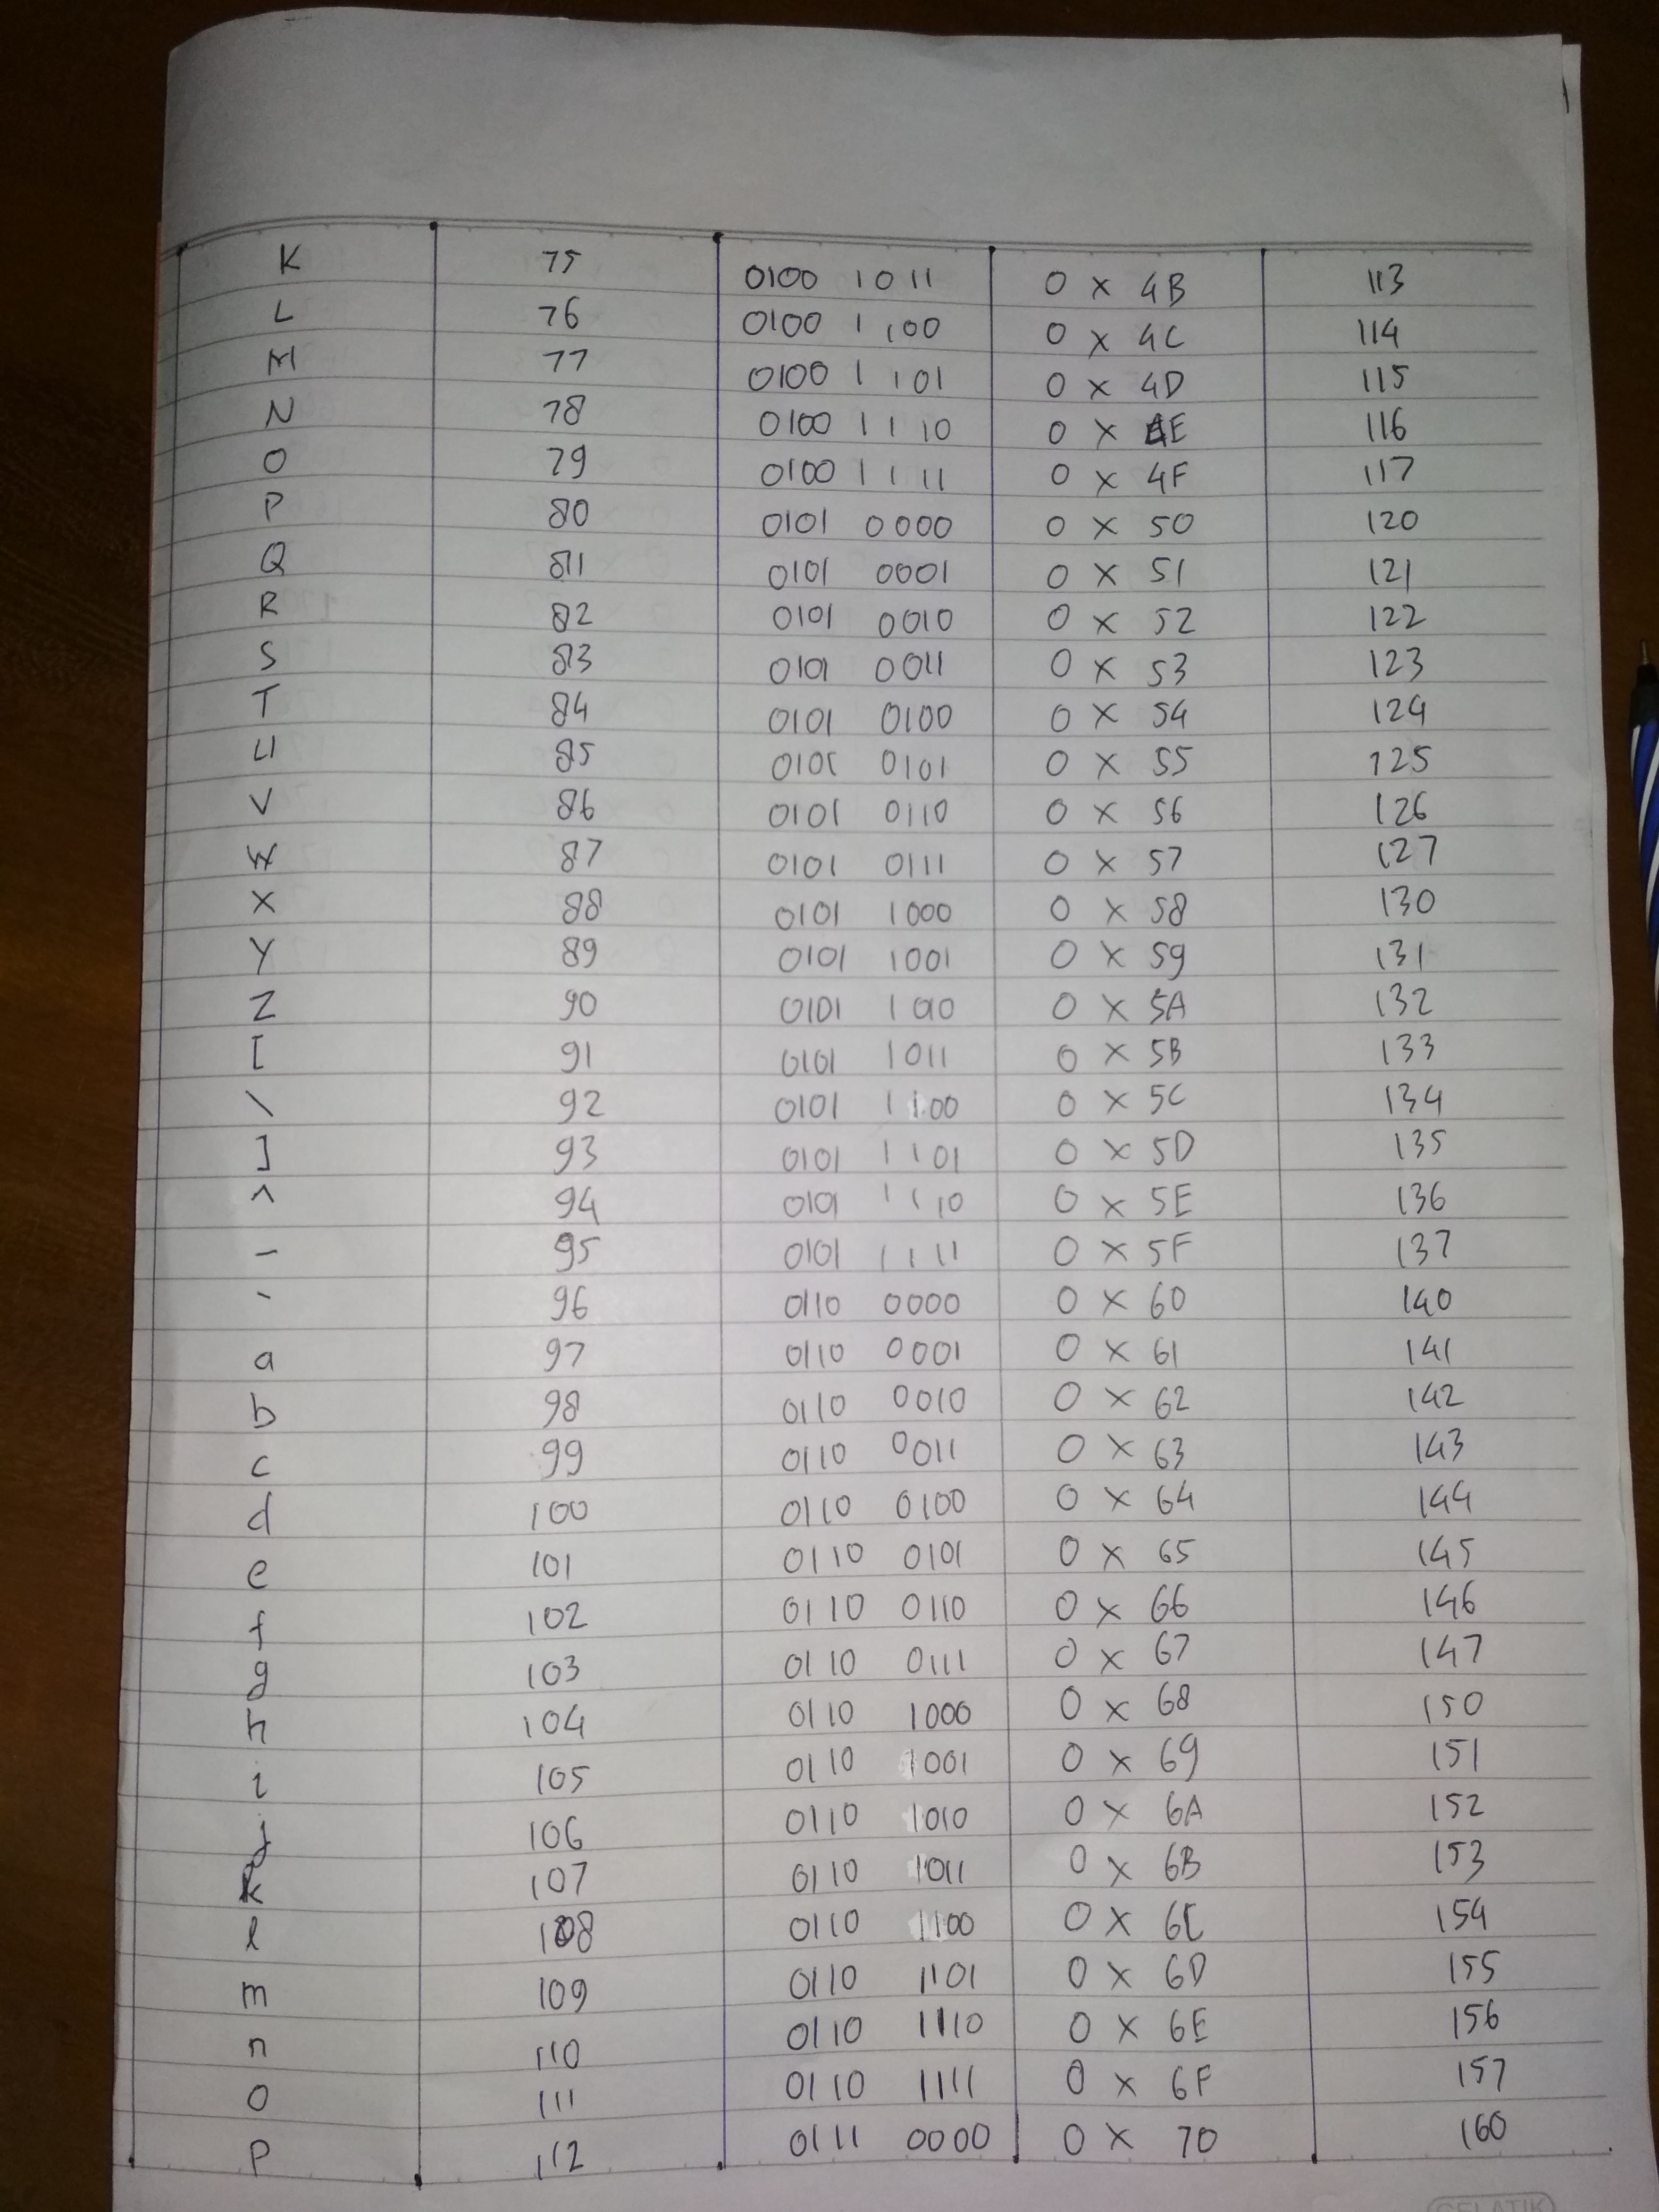 K 75 0100 1011 0 x 4B 113
L 76 0100 1100 0 x 4C 114
M 77 0100 1101 0 x 4D 115
N 78 0100 1110 0 x 4E 116
O 79 0100 1111 0 x 4F 117
P 80 0101 0000 0 x 50 120
Q 81 0101 0001 0 x 51 121
R 82 0101 0010 0 x 52 122
S 83 0101 0011 0 x 53 123
T 84 0101 0100 0 x 54 124
U 85 0101 0101 0 x 55 125
V 86 0101 0110 0 x 56 126
W 87 0101 0111 0 x 57 127
X 88 0101 1000 0 x 58 130
Y 89 0101 1001 0 x 59 131
Z 90 0101 1010 0 x 5A 132
[ 91 0101 1011 0 x 5B 133
\ 92 0101 1100 0 x 5C 134
] 93 0101 1101 0 x 5D 135
^ 94 0101 1110 0 x 5E 136
_ 95 0101 1111 0 x 5F 137
` 96 0110 0000 0 x 60 140
a 97 0110 0001 0 x 61 141
b 98 0110 0010 0 x 62 142
c 99 0110 0011 0 x 63 143
d 100 0110 0100 0 x 64 144
e 101 0110 0101 0 x 65 145
f 102 0110 0110 0 x 66 146
g 103 0110 0111 0 x 67 147
h 104 0110 1000 0 x 68 150
i 105 0110 1001 0 x 69 151
j 106 0110 1010 0 x 6A 152
k 107 0110 1011 0 x 6B 153
l 108 0110 1100 0 x 6C 154
m 109 0110 1101 0 x 6D 155
n 110 0110 1110 0 x 6E 156
o 111 0110 1111 0 x 6F 157
p 112 0111 0000 0 x 70 160
GELATIK